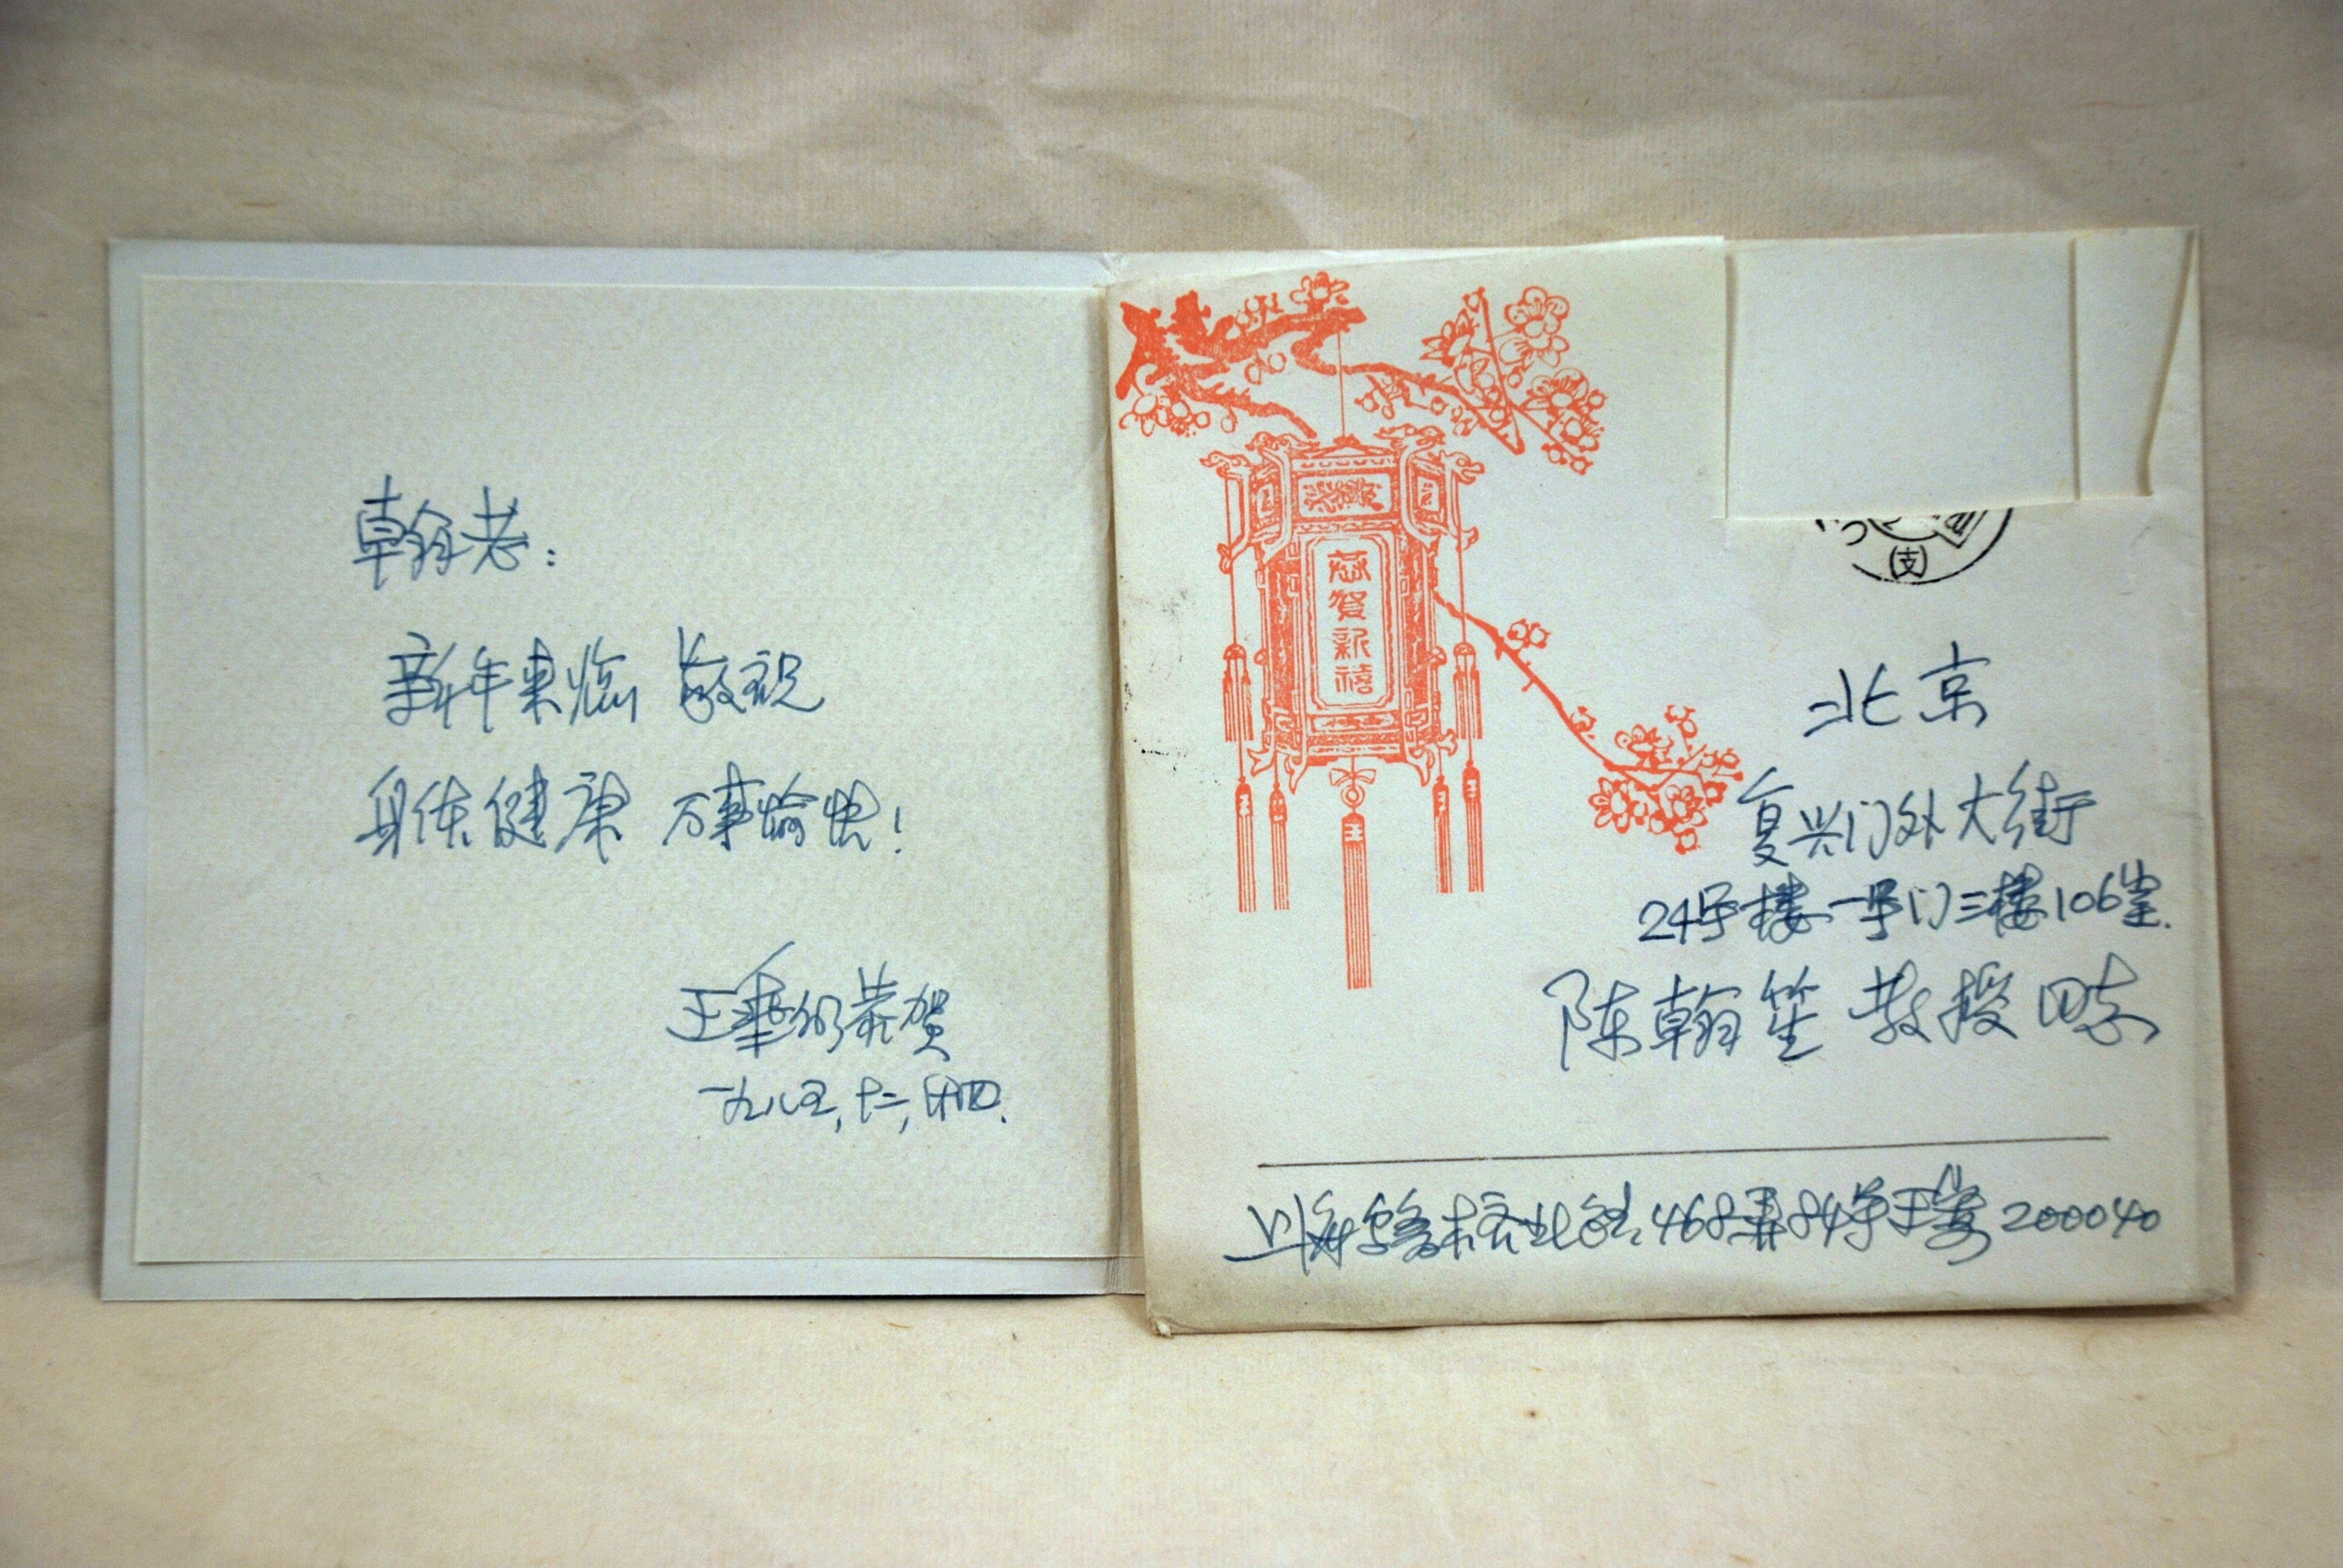 翰老:
新年来临 敬祝
身体健康 万事愉快!
王 恭贺
一九八五,十二,廿四.
恭贺新禧
(支)
北京
复兴门外大街
24号楼一号门三楼106室.
陈翰笙教授
上海乌鲁木齐北路468弄84号王 200040